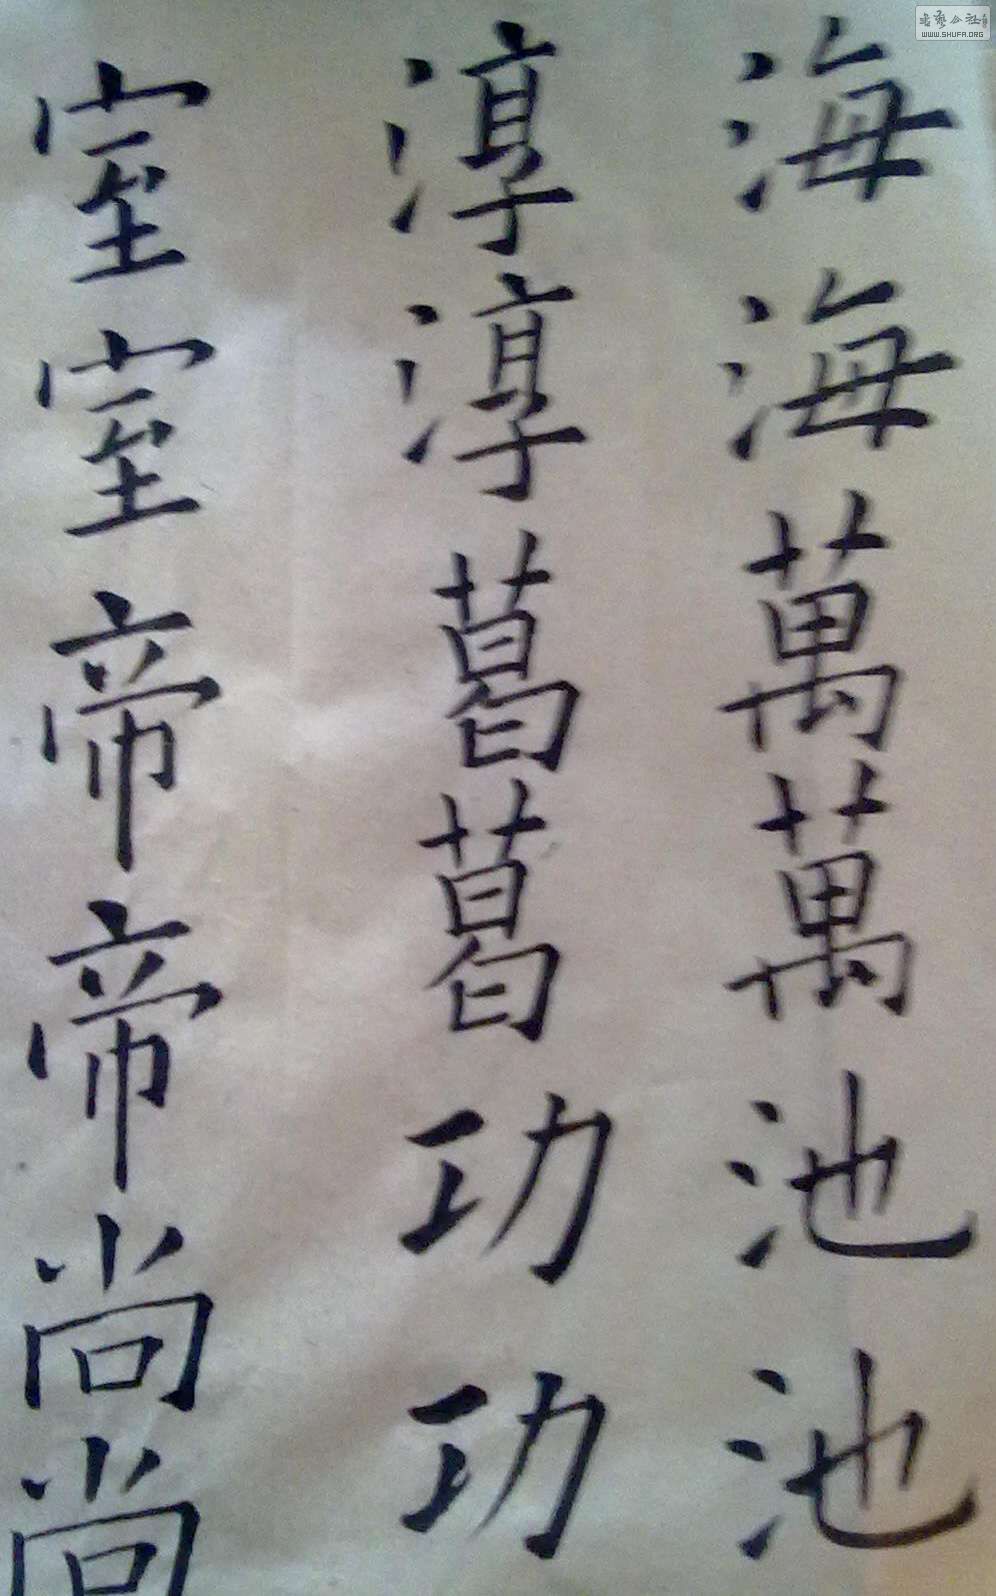 海海萬萬池池
淳淳葛葛功功
室室帝帝尚尚
WWW.SHUFA.ORG